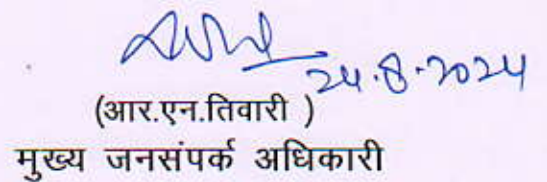 24.8.2024
(आर.एन.तिवारी )
मुख्य जनसंपर्क अधिकारी